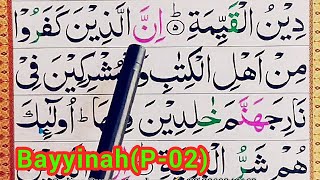 دِيْنُ الْقَيِّمَةِ ۞ اِنَّ الَّذِيْنَ كَفَرُوْا
مِنْ اَهْلِ الْكِتٰبِ وَالْمُشْرِكِيْنَ فِيْ
نَارِ جَهَنَّمَ خٰلِدِيْنَ فِيْهَا ؕ اُولٰٓئِكَ
هُمْ شَرُّ
Bayyinah(P-02)